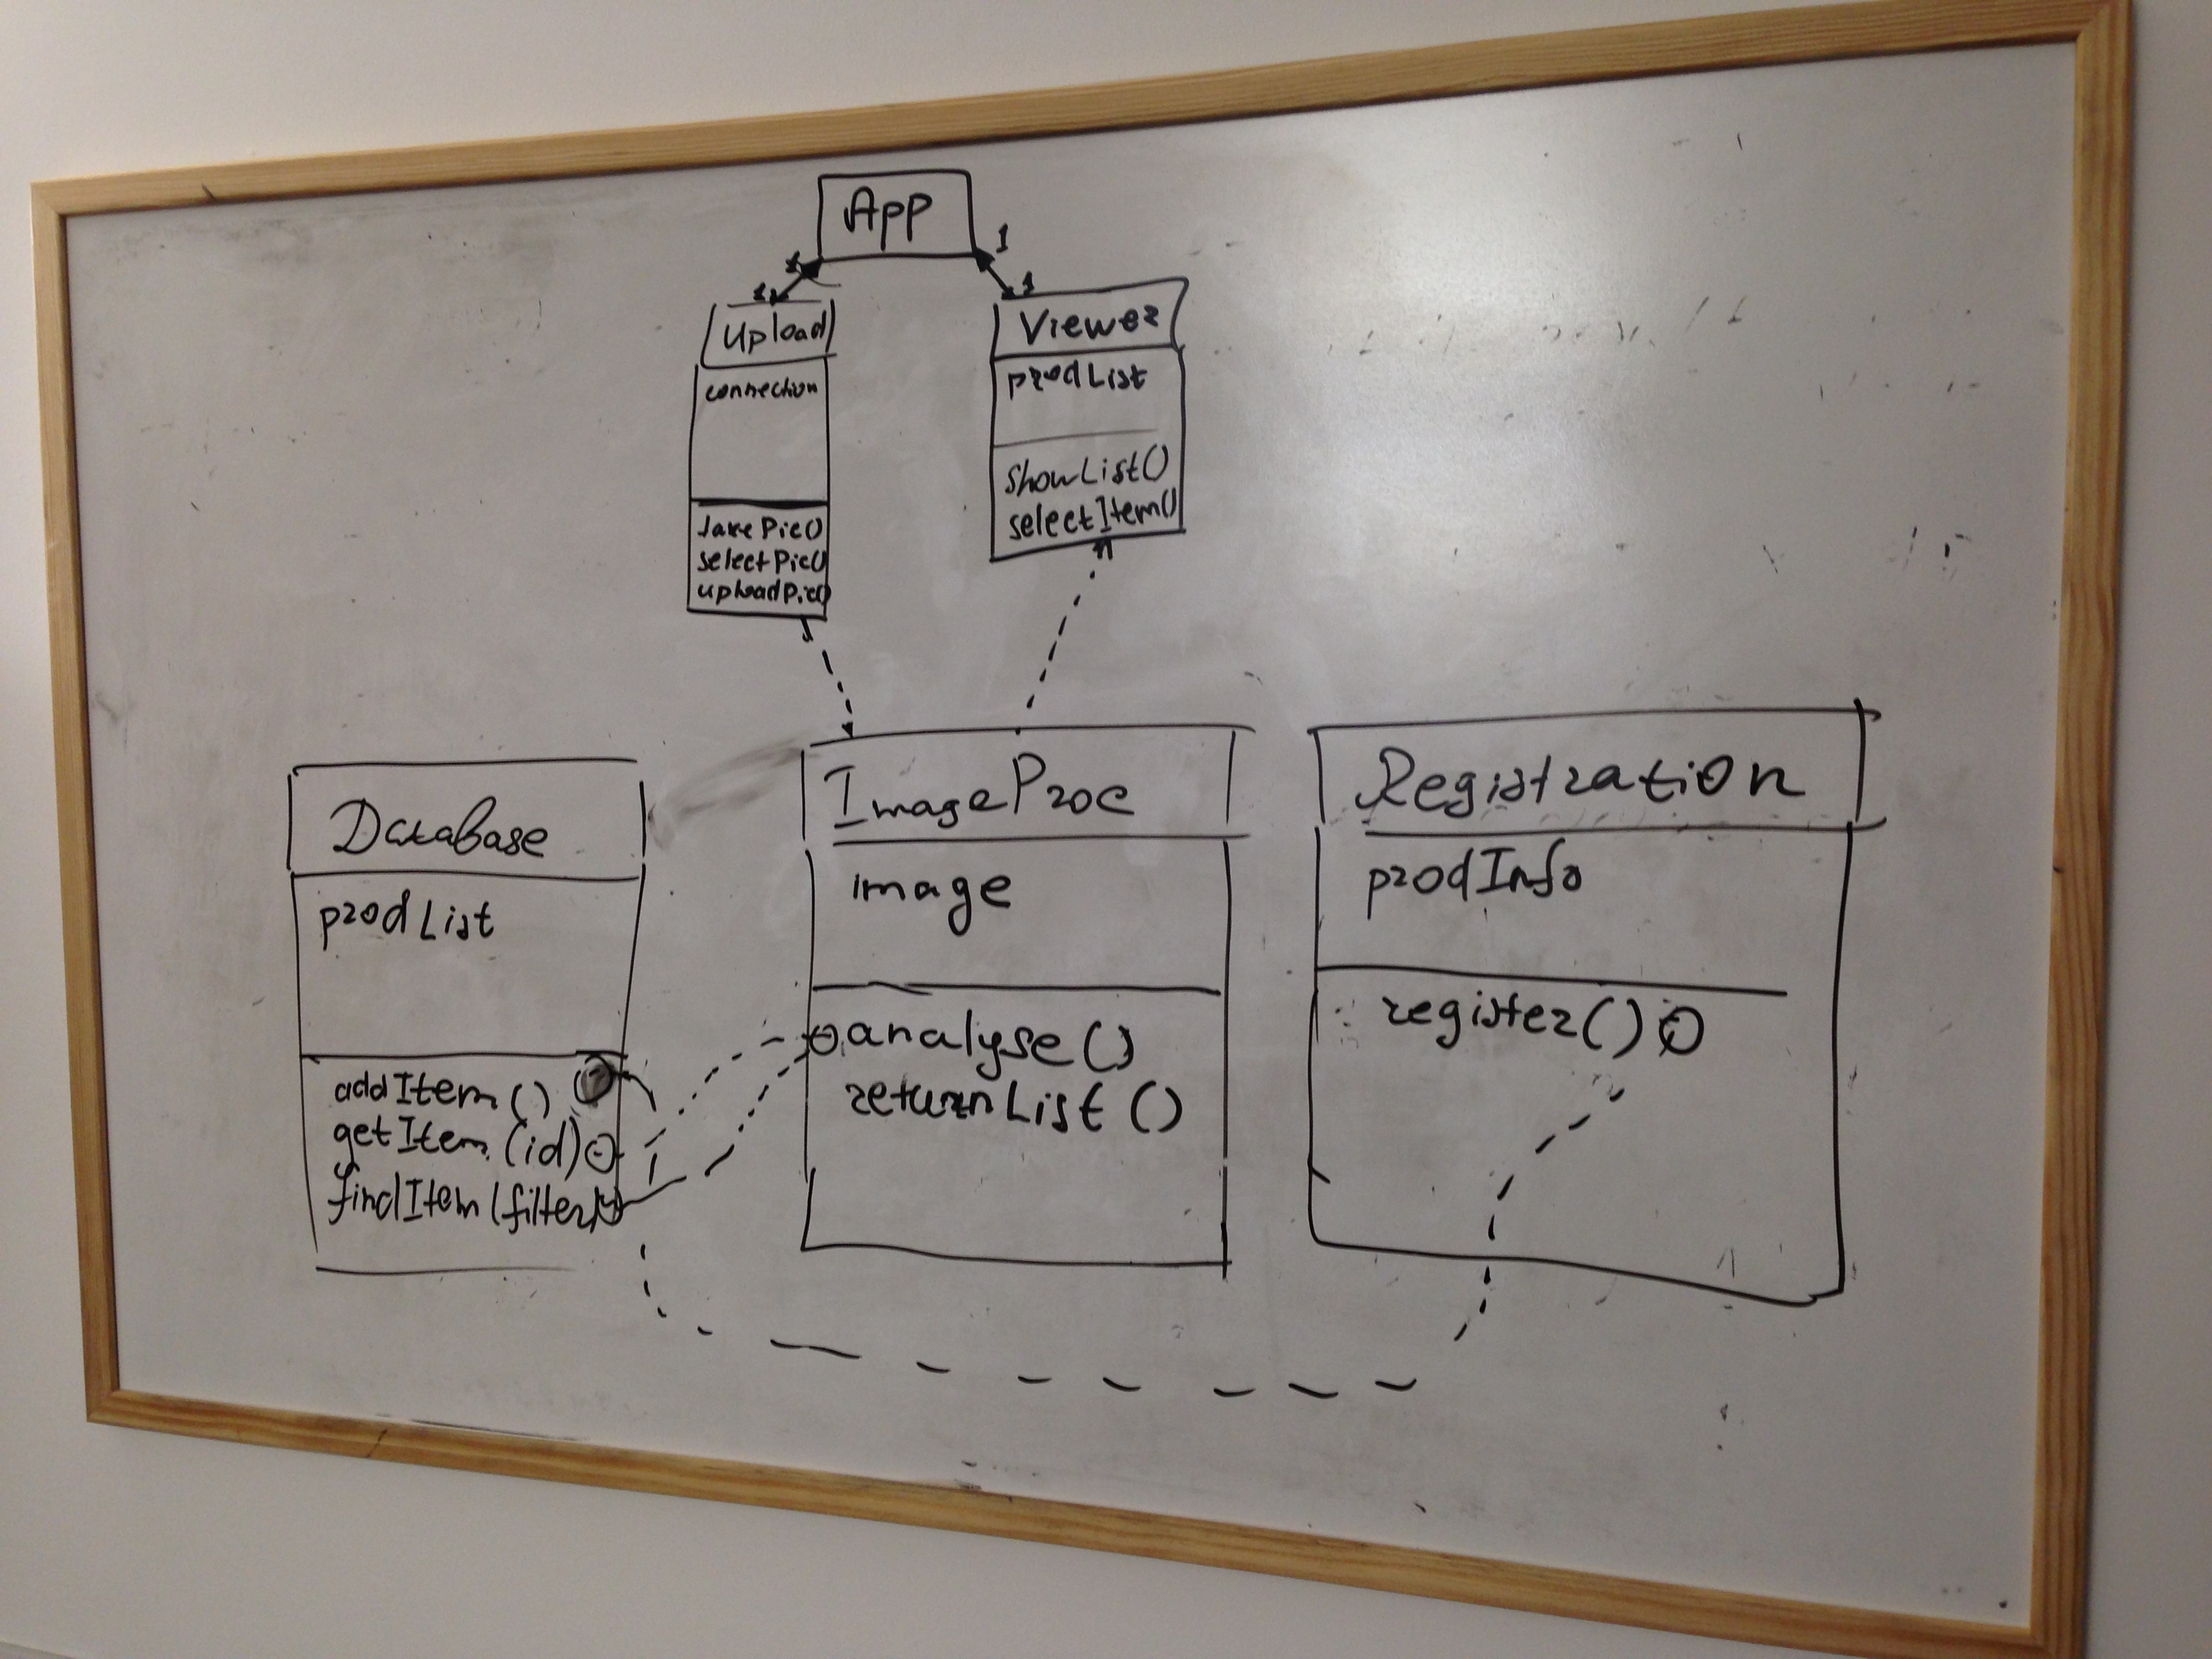 App
1
1
1
1
Upload
connection
takePic()
selectPic()
uploadPic()
Viewer
prodList
showList()
selectItem()
Database
prodList
addItem()
getItem(id)
findItem(filter)
ImageProc
image
analyse()
returnList()
Registration
prodInfo
register()